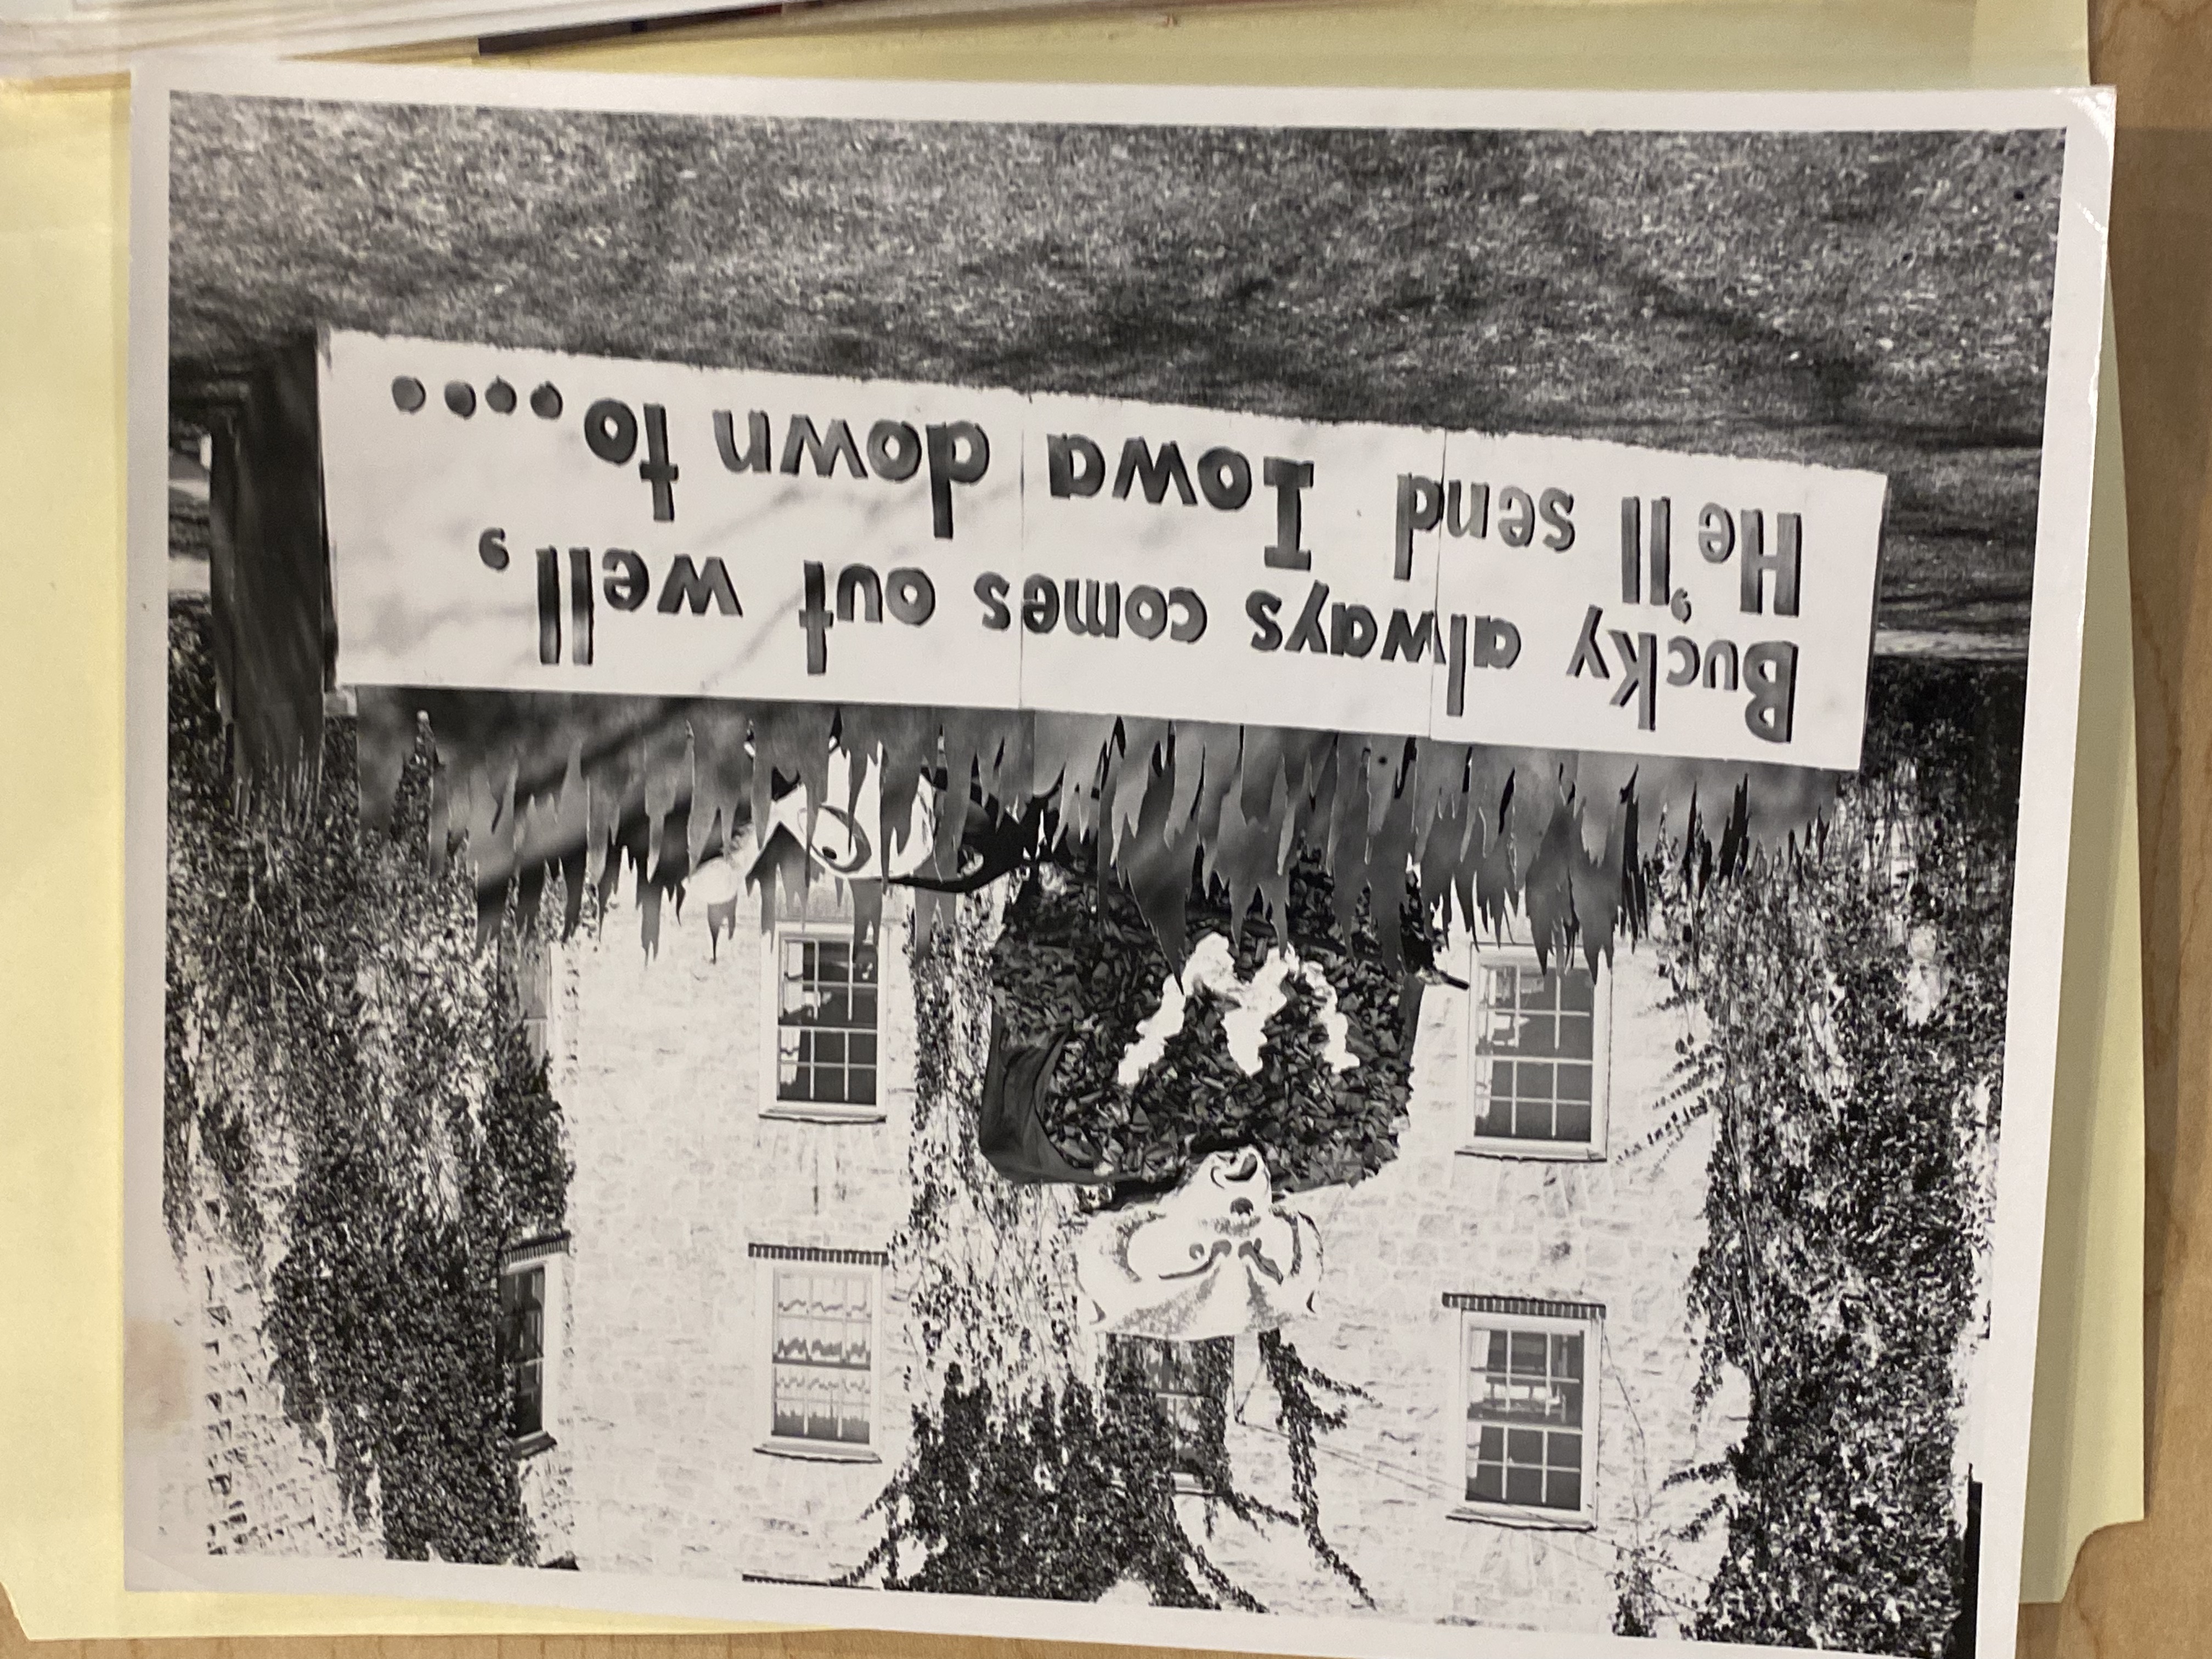 Bucky always comes out well,
He'll send Iowa down to.....
W